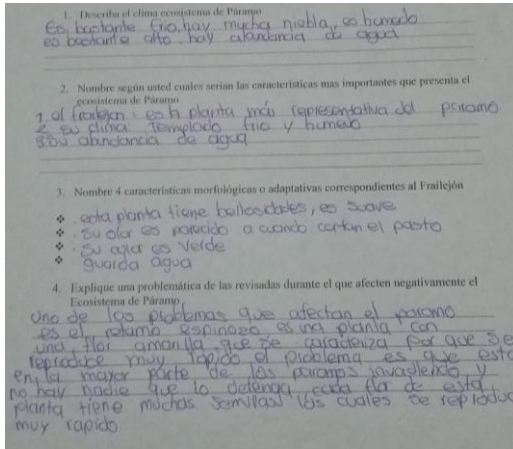 1. Describa el clima ecosistema de Páramo
Es bastante frio, hay mucha niebla, es humedo
es bastante alto. hay abandancia de agua
2. Nombre según usted cuales serian las características mas importantes que presenta el
ecosistema de Páramo
1. el frailejon: es la planta más representativa del paramo
2 su clima Templado frio y humedo
3 Su abundancia de agua
3. Nombre 4 características morfológicas o adaptativas correspondientes al Frailejón
❖ . esta planta tiene bellosidades, es suave
❖ . su olor es parecido a cuando cortan el pasto
❖ . Su color es verde
❖ . guarda agua
4. Explique una problemática de las revisadas durante el que afecten negativamente el
Ecosistema de Páramo
Uno de los problemas que afectan el paramo
es el retamo espinozo es una planta con
una flor amarilla que se caracteriza por que se
reproduce muy rapido el problema es que esta
en la mayor parte de los paramos invadiendo y
no hay nadie que lo detenga, cada flor de esta
planta tiene muchas semillas las cuales se reproduc
muy rapido